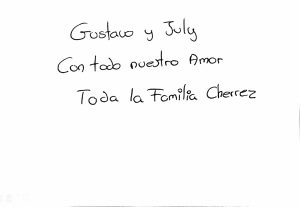 Gustavo y July
Con todo nuestro Amor
Toda la Familia Cherrez